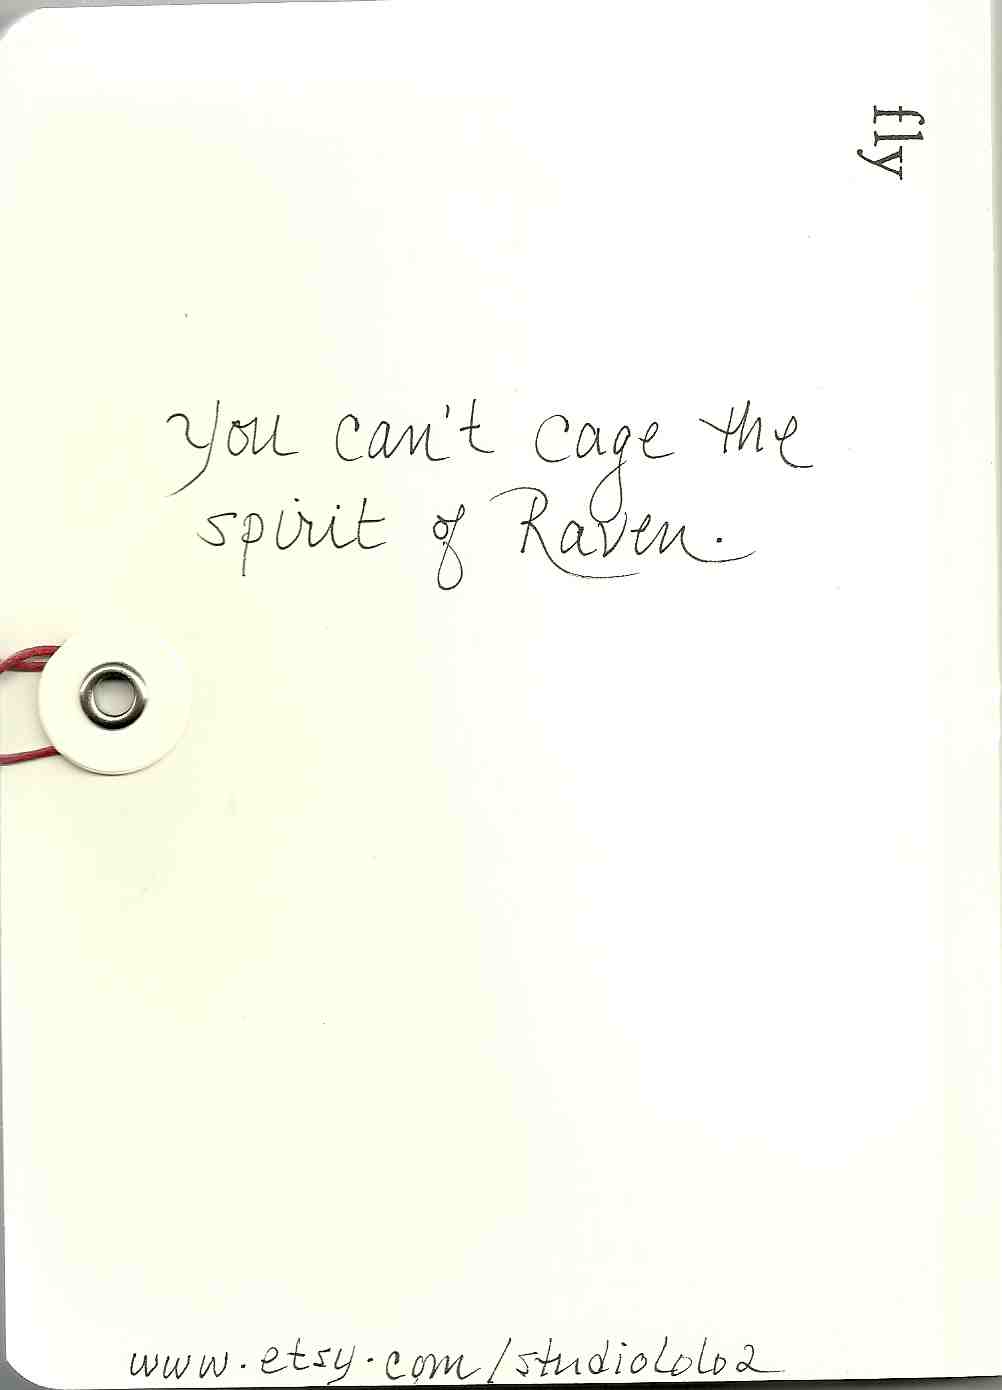 fly
You can't cage the
spirit of Raven.
www.etsy.com/studiololo2